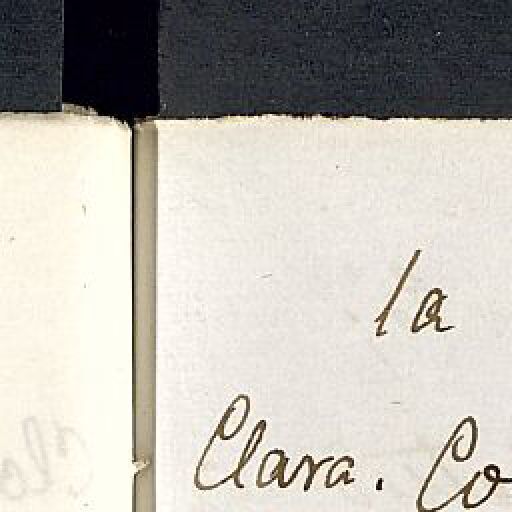 la
Clara. Co